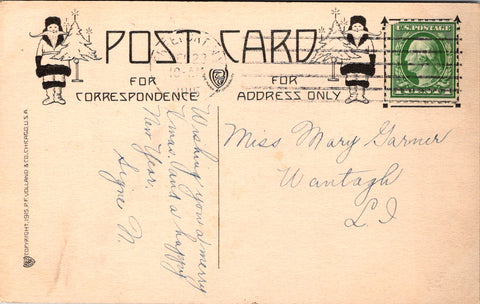 POST CARD
FOR
CORRESPONDENCE
FOR
ADDRESS ONLY
U.S. POSTAGE
Wishing you a merry
Xmas. and a happy
New Year.
Signe N.
Miss Mary Garner
Wantagh
L I
COPYRIGHT, 1915 P.F. VOLLAND & CO. CHICAGO, U.S.A.